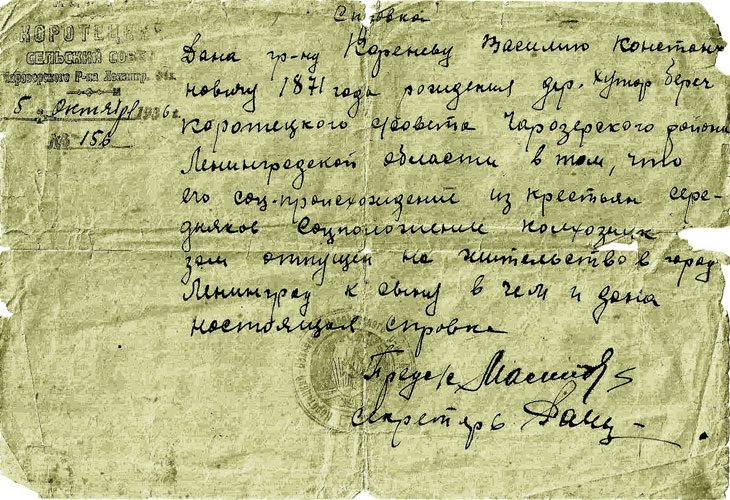 Справка
КОРОТЕЦКИЙ
СЕЛЬСКИЙ СОВЕТ
Чарозерского Р-на Ленингр. обл.
5 Октября 1936 г.
№ 156
Дана гр-ну Кореневу Василию Констан
новичу 1871 года рождения дер. Хутор Берег
Коротецкого с/совета Чарозерского района
Ленинградской области в том, что
его соц-происхождение из крестьян сере-
дняков Соцположение колхозник
зам отпущен на жительство в город
Ленинград к сыну в чем и дана
настоящая справка
Предс/с
секретарь